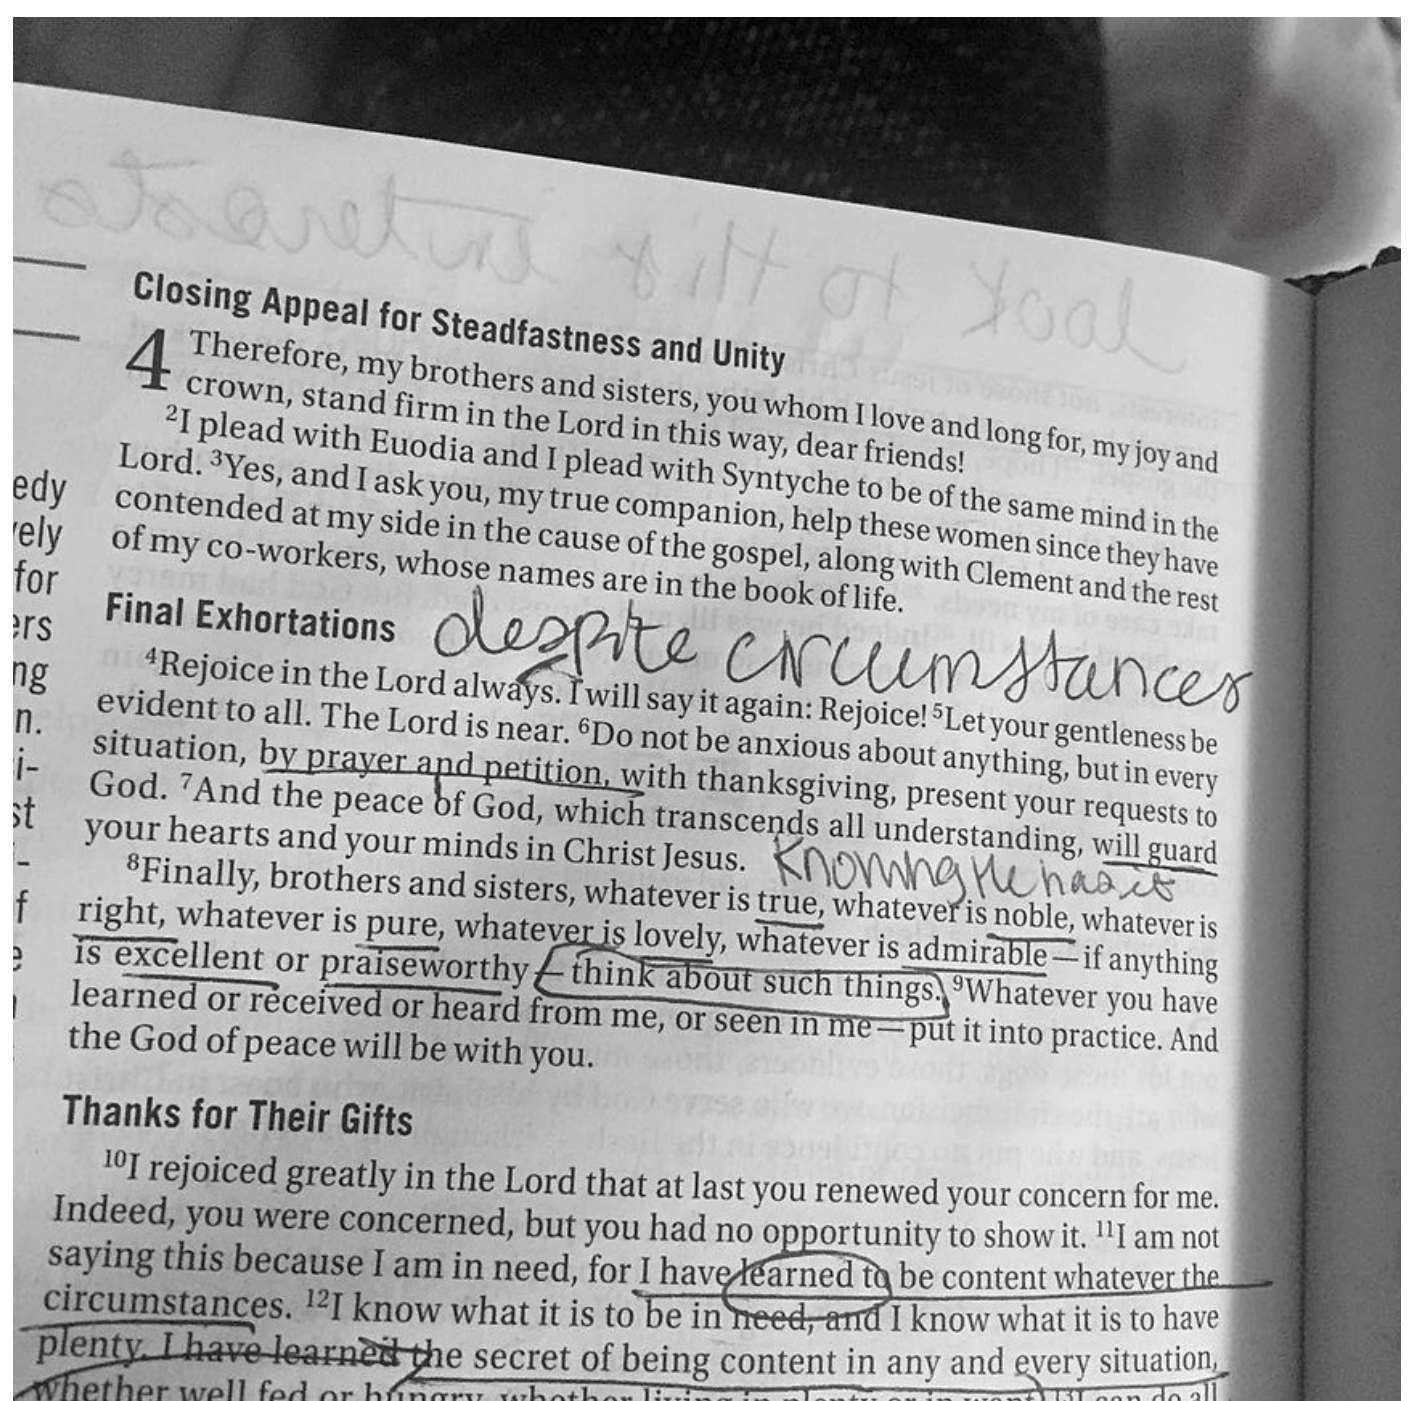 look to this interests
Closing Appeal for Steadfastness and Unity
4 Therefore, my brothers and sisters, you whom I love and long for, my joy and
crown, stand firm in the Lord in this way, dear friends!
2I plead with Euodia and I plead with Syntyche to be of the same mind in the
Lord. 3Yes, and I ask you, my true companion, help these women since they have
contended at my side in the cause of the gospel, along with Clement and the rest
of my co-workers, whose names are in the book of life.
Final Exhortations despite circumstances
4Rejoice in the Lord always. I will say it again: Rejoice! 5Let your gentleness be
evident to all. The Lord is near. 6Do not be anxious about anything, but in every
situation, by prayer and petition, with thanksgiving, present your requests to
God. 7And the peace of God, which transcends all understanding, will guard
your hearts and your minds in Christ Jesus. Knowing He has it
8Finally, brothers and sisters, whatever is true, whatever is noble, whatever is
right, whatever is pure, whatever is lovely, whatever is admirable—if anything
is excellent or praiseworthy—think about such things. 9Whatever you have
learned or received or heard from me, or seen in me—put it into practice. And
the God of peace will be with you.
Thanks for Their Gifts
10I rejoiced greatly in the Lord that at last you renewed your concern for me.
Indeed, you were concerned, but you had no opportunity to show it. 11I am not
saying this because I am in need, for I have learned to be content whatever the
circumstances. 12I know what it is to be in need, and I know what it is to have
plenty. I have learned the secret of being content in any and every situation,
whether well fed or hungry, whether living in plenty or in want. 13I can do all
edy
vely
for
ers
ng
n.
i-
st
-
f
e